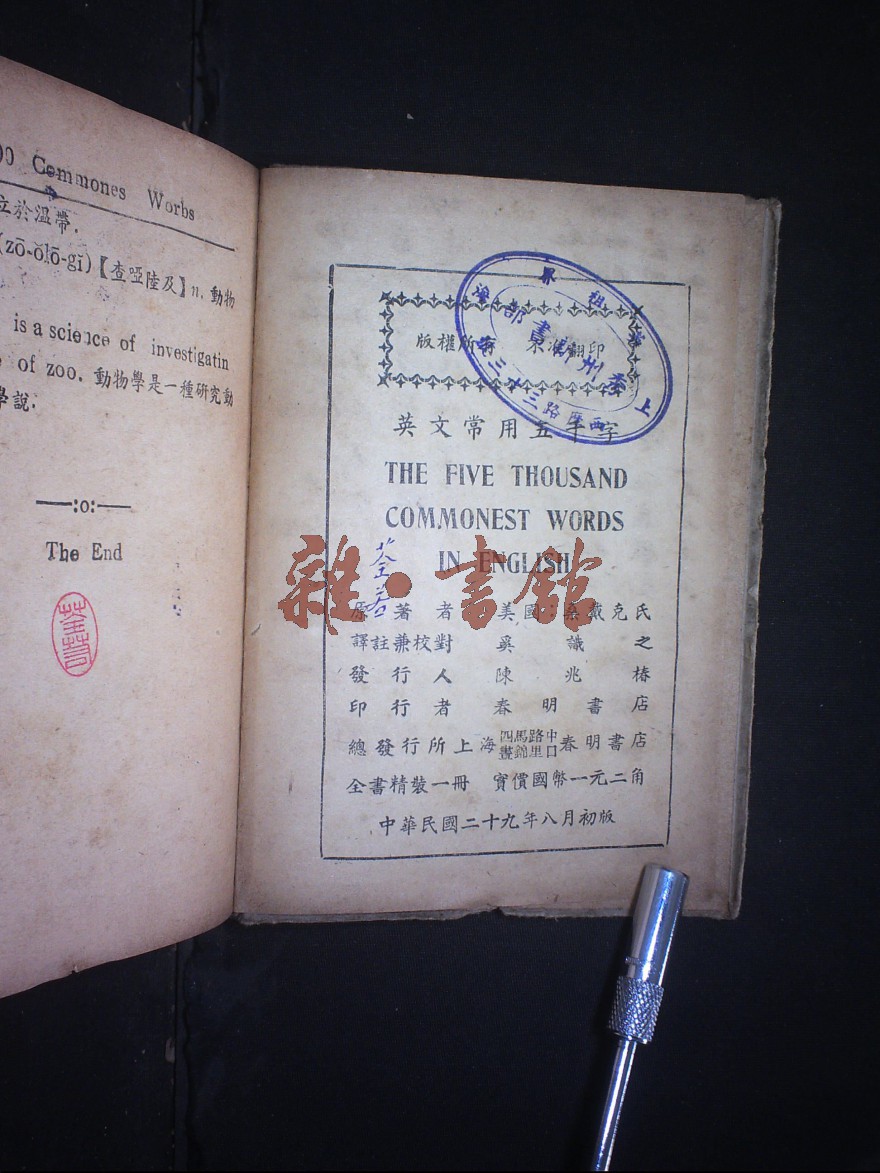 00 Commones Worbs
立於溫帶.
(zō-ŏlō-gĭ)【查啞陸及】n. 動物
is a science of investigatin
of zoo. 動物學是一種研究動
學說.
—:o:—
The End
版權所有 不准翻印
英文常用五千字
THE FIVE THOUSAND
COMMONEST WORDS
IN ENGLISH
原著者 美國:桑戴克氏
譯註兼校對 奚識之
發行人 陳兆椿
印行者 春明書店
總發行所上海四馬路中晝錦里口春明書店
全書精裝一冊 實價國幣一元二角
中華民國二十九年八月初版
雜·書館